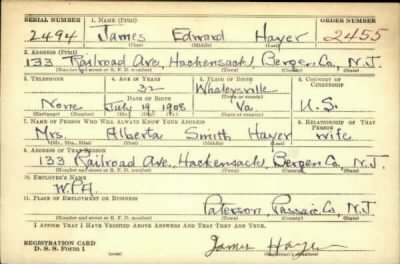 SERIAL NUMBER 1. NAME (Print) ORDER NUMBER
2494 James Edward Hayer 2455
(First) (Middle) (Last)
2. ADDRESS (Print)
133 Railroad Ave, Hackensack, Bergen Co., N.J.
(Number and street or R. F. D. number) (Town) (County) (State)
3. TELEPHONE 4. AGE IN YEARS 5. PLACE OF BIRTH 6. COUNTRY OF CITIZENSHIP
32 Whaleysville
DATE OF BIRTH (Town or county)
None July 19, 1908 Va. U.S.
(Exchange) (Number) (Mo.) (Day) (Yr.) (State or country)
7. NAME OF PERSON WHO WILL ALWAYS KNOW YOUR ADDRESS 8. RELATIONSHIP OF THAT PERSON
Mrs. Alberta Smith Hayer Wife
(Mr., Mrs., Miss) (First) (Middle) (Last)
9. ADDRESS OF THAT PERSON
133 Railroad Ave, Hackensack, Bergen Co., N.J.
(Number and street or R. F. D. number) (Town) (County) (State)
10. EMPLOYER'S NAME
W.P.A.
11. PLACE OF EMPLOYMENT OR BUSINESS
Paterson, Passaic Co, N.J.
(Number and street or R. F. D. number) (Town) (County) (State)
I AFFIRM THAT I HAVE VERIFIED ABOVE ANSWERS AND THAT THEY ARE TRUE.
REGISTRATION CARD
D. S. S. Form 1 James Hayer